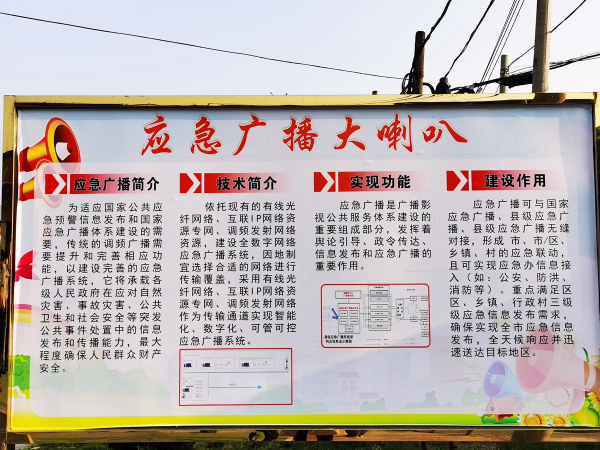 应急广播大喇叭
应急广播简介
为适应国家公共应
急预警信息发布和国家
应急广播体系建设的需
要，传统的调频广播需
要提升和完善相应功
能，以建设完善的应急
广播系统，它将承载各
级人民政府在应对自然
灾害、事故灾害、公共
卫生和社会安全等突发
公共事件处置中的信息
发布和传播能力，最大
程度确保人民群众财产
安全。
技术简介
依托现有的有线光
纤网络、互联IP网络资
源专网、调频发射网络
资源，建设全数字网络
应急广播系统，因地制
宜选择合适的网络进行
传输覆盖，采用有线光
纤网络、互联IP网络资
源专网、调频发射网络
作为传输通道实现智能
化、数字化、可管可控
应急广播系统。
实现功能
应急广播是广播影
视公共服务体系建设的
重要组成部分，发挥着
舆论引导、政令传达、
信息发布和应急广播的
重要作用。
建设作用
应急广播可与国家
应急广播、县级应急广
播、县级应急广播无缝
对接，形成 市、市/区、
乡镇、村的应急联动，
且可实现应急办信息接
入（如：公安、防洪、
消防等）。重点满足区
区、乡镇、行政村三级
级应急信息发布需求，
确保实现全市应急信息
发布，全天候响应并迅
速送达目标地区。